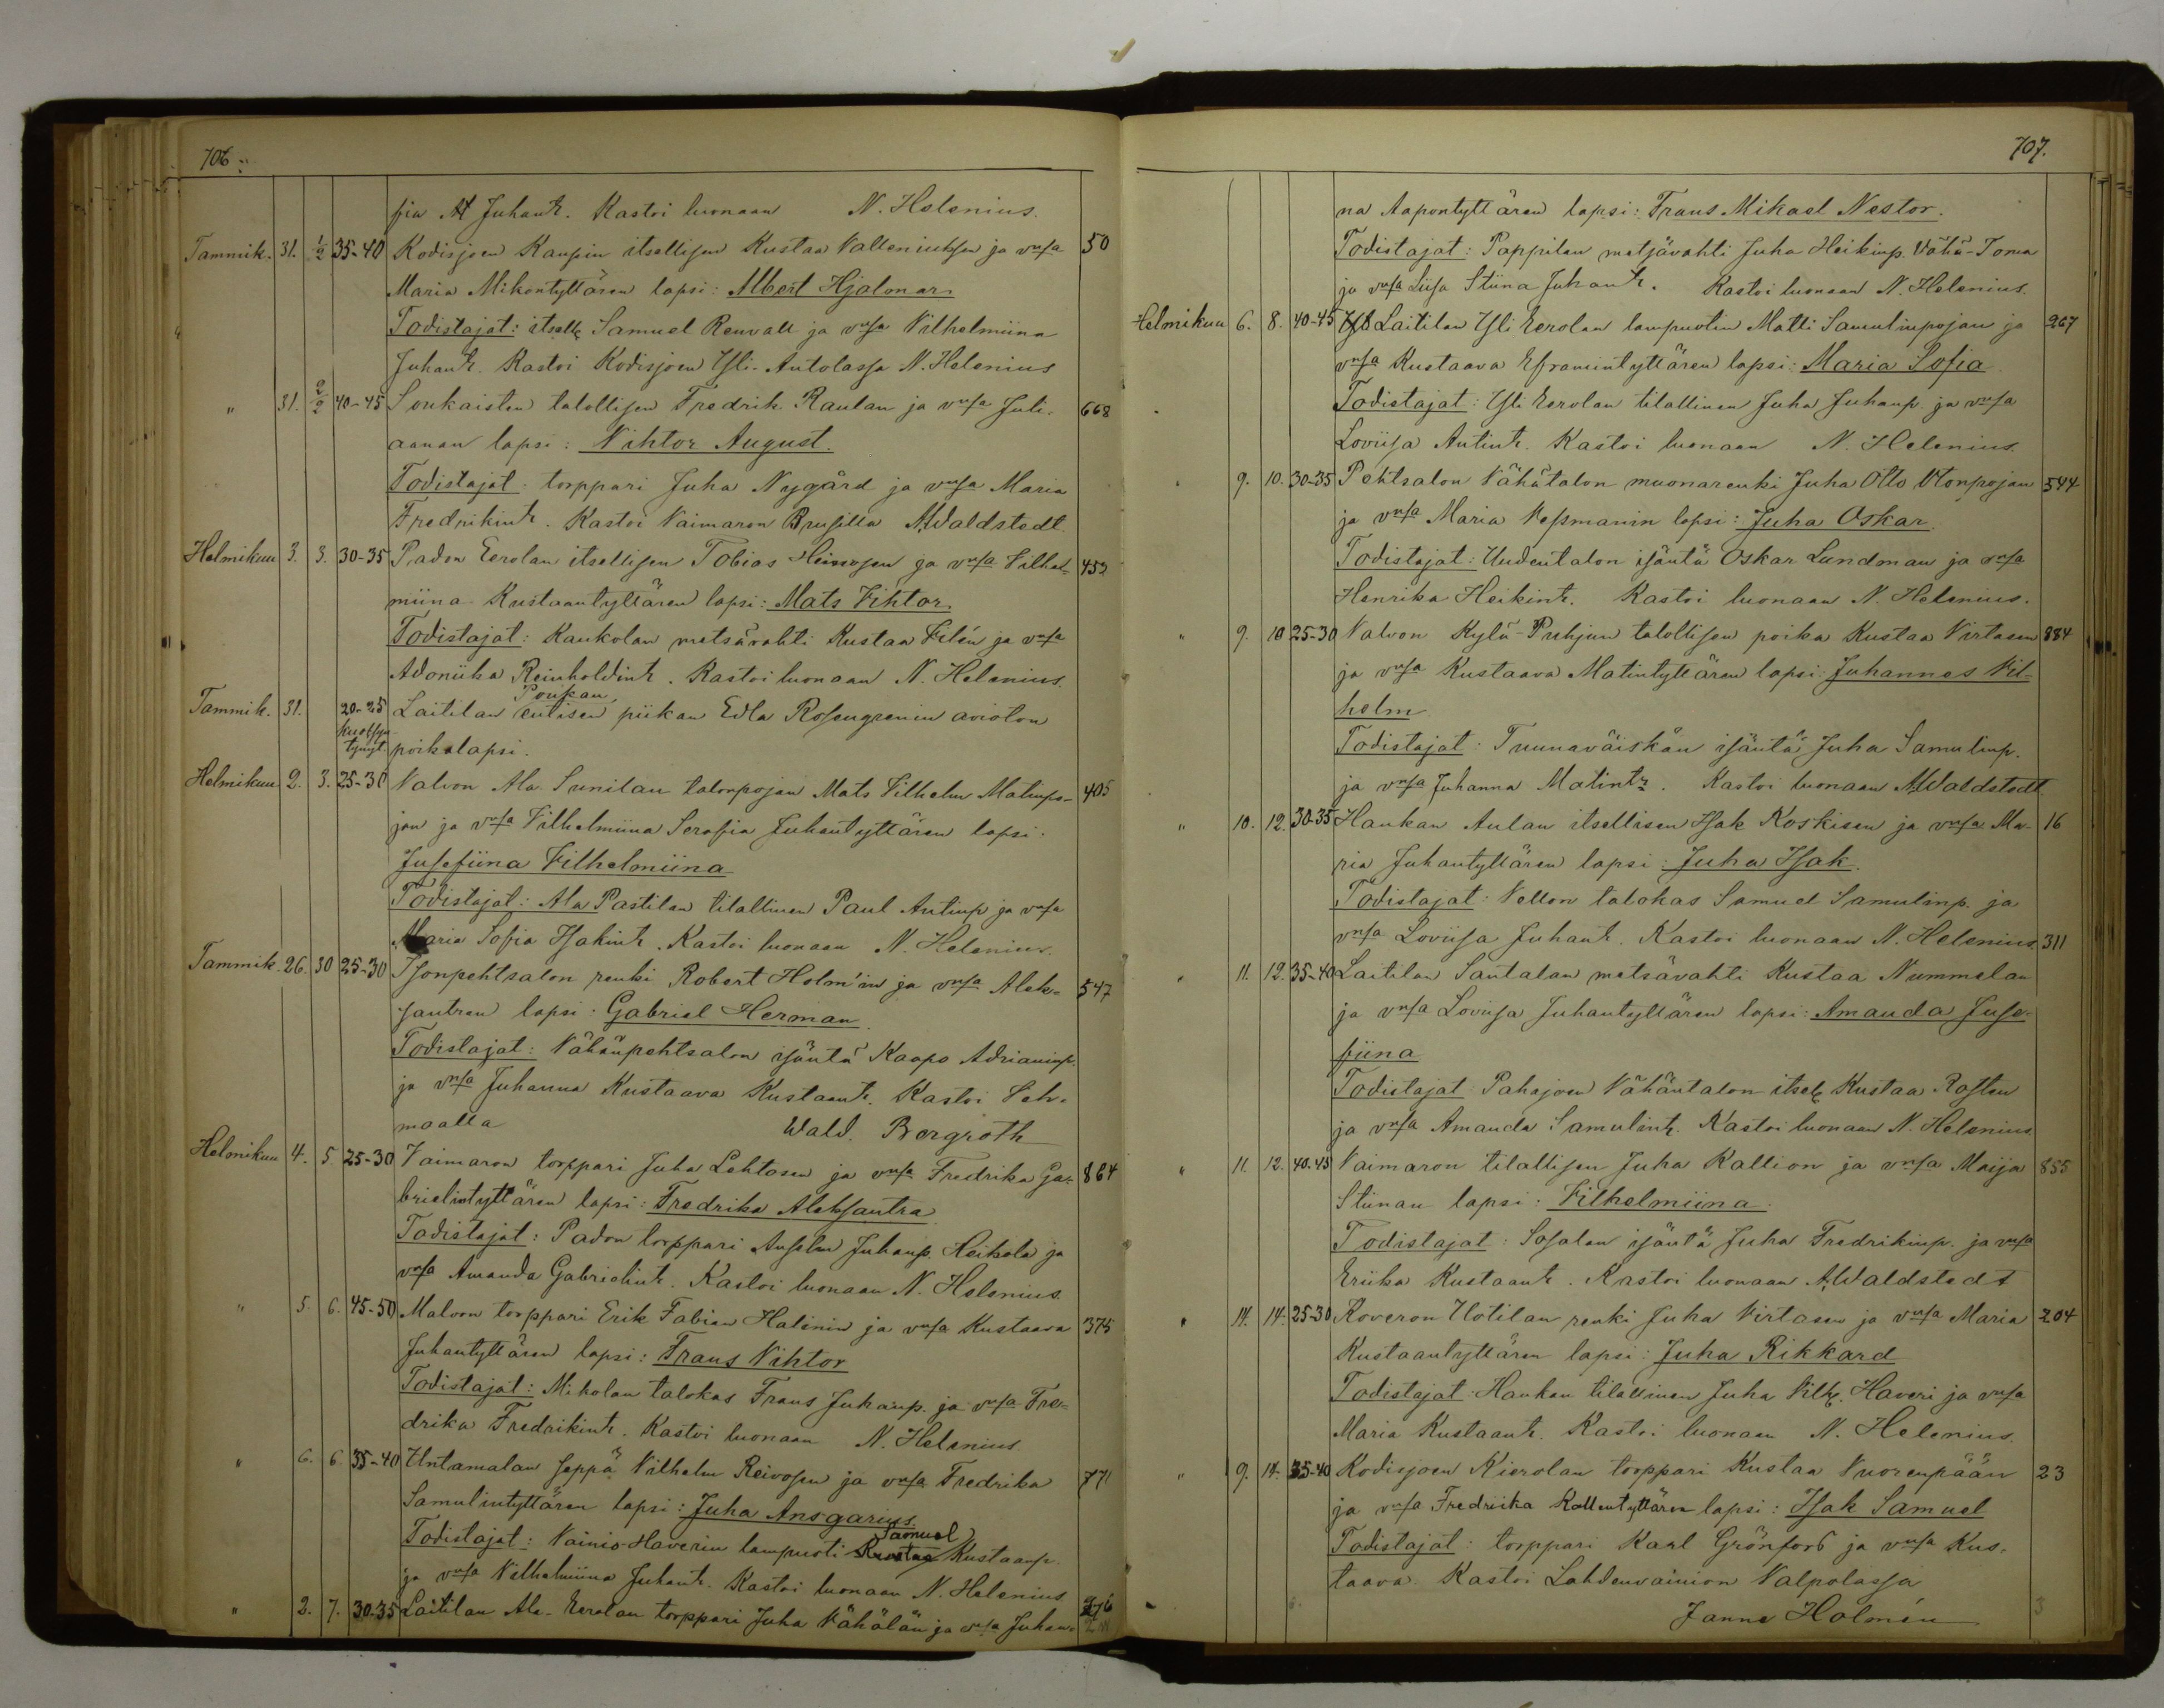 706.
fia Juhantr. Kastoi luonaan N. Helenius.
Tammik. 31. 1/2 35-40 Kodisjoen Kaupin itsellisen Kustaa Valleniuksen ja vmsa 50
Maria Mikontyttären lapsi: Albert Hjalmar.
Todistajat: itsell. Samuel Renvall ja vmsa Vilhelmiina
Juhantr. Kastoi Kodisjoen Yli-Antolassa N. Helenius
" 31. 2/2 40-45 Soukaisten talollisen Fredrik Raulan ja vmsa Juli- 668
aanan lapsi: Vihtor August.
Todistajat: torppari Juha Nygård ja vmsa Maria
Fredrikintr. Kastoi Vaimaron Prusilla A. Waldstedt.
Helmikuu 3. 3. 30-35 Padon Eerolan itsellisen Tobias Heinosen ja vmsa Vilhel- 452
miina Kustaantyttären lapsi: Mats Vihtor.
Todistajat: Kaukolan metsävahti Kustaa Filén ja vmsa
Adoniika Reinholdintr. Kastoi luonaan N. Helenius.
Tammik. 31. 20-25 Laitilan Poukan entisen piikan Edla Rosengrenin avioton
kuolleena syntynyt. poikalapsi.
Helmikuu 2. 3. 25-30 Valvon Ala-Sunilan talonpojan Mats Vilhelm Matinpo- 405
jan ja vmsa Vilhelmiina Serafia Juhantyttären lapsi:
Jusefiina Vilhelmiina
Todistajat: Ala Pastilan tilallinen Paul Antinp. ja vmsa
Maria Sofia Isakintr. Kastoi luonaan N. Helenius.
Tammik. 26. 30 25-30 Isonpehtsalon renki Robert Holm'in ja vmsa Alek- 547
santran lapsi: Gabriel Herman.
Todistajat: Vähänpehtsalon isäntä Kaapo Adrianinp.
ja vmsa Juhanna Kustaava Kustaantr. Kastoi Veh-
maalla Wald. Bergroth
Helmikuu 4. 5 25-30 Vaimaron torppari Juha Lehtosen ja vmsa Fredrika Ga- 864
brielintyttären lapsi: Fredrika Aleksantra.
Todistajat: Padon torppari Anselm Juhanp. Heikola ja
vmsa Amanda Gabrielintr. Kastoi luonaan N. Helenius.
" 5. 6. 45-50 Malvon torppari Erik Fabian Halinin ja vmsa Kustaava 375
Juhantyttären lapsi: Frans Vihtor
Todistajat: Mikolan talokas Frans Juhanp. ja vmsa Fre-
drika Fredrikintr. Kastoi luonaan N. Helenius.
" 6. 6. 35-40 Untamalan seppä Vilhelm Reivosen ja vmsa Fredrika 771
Samulintyttären lapsi: Juha Ansgarius.
Todistajat: Vainio-Haverin lampuoti Samuel Kustaanp.
ja vmsa Vilhelmiina Juhantr. Kastoi luonaan N. Helenius
" 2. 7. 30-35 Laitilan Ala-Eerolan torppari Juha Vähälän ja vmsa Juhan- 276
707.
na Aapontyttären lapsi: Frans Mikael Nestor.
Todistajat: Pappilan metsävahti Juha Heikinp. Vähä-Toma
ja vmsa Liisa Stiina Juhantr. Kastoi luonaan N. Helenius.
Helmikuu 6. 8. 40-45 Laitilan Yli Eerolan lampuotin Matti Samulinpojan ja 267
vmsa Kustaava Eframintyttären lapsi: Maria Sofia.
Todistajat: Yli Eerolan tilallinen Juha Juhanp. ja vmsa
Loviisa Antintr. Kastoi luonaan N. Helenius.
" 9. 10. 30-35 Pehtsalon Vähätalon muonarenki Juha Otto Otonpojan 544
ja vmsa Maria Vessmanin lapsi: Juha Oskar.
Todistajat: Uudentalon isäntä Oskar Lundman ja vmsa
Henrika Heikintr. Kastoi luonaan N. Helenius.
" 9. 10 25-30 Valvon Kylä-Puhjun talollisen poika Kustaa Virtasen 884
ja vmsa Kustaava Matintyttären lapsi: Juhannes Vil-
helm
Todistajat: Tuunaväiskän isäntä Juha Samulinp.
ja vmsa Juhanna Matintr. Kastoi luonaan A. Waldstedt
" 10. 12. 30-35 Haukan Aulan itsellisen Isak Koskisen ja vmsa Ma- 16
ria Juhantyttären lapsi: Juha Isak.
Todistajat: Vellon talokas Samuel Samulinp. ja
vmsa Loviisa Juhantr. Kastoi luonaan N. Helenius. 311
" 11. 12. 35-40 Laitilan Santalan metsävahti Kustaa Nummelan
ja vmsa Loviisa Juhantyttären lapsi: Amanda Juse-
fiina
Todistajat: Pahojoen Vähäntalon itsell. Kustaa Rosten
ja vmsa Amanda Samulintr. Kastoi luonaan N. Helenius
" 11. 12. 40-45 Vaimaron tilallisen Juha Kallion ja vmsa Maija 855
Stiinan lapsi: Vilhelmiina.
Todistajat: Sosalan isäntä Juha Fredrikinp. ja vmsa
Eriika Kustaantr. Kastoi luonaan A. Waldstedt
" 14. 14. 25-30 Koveron Uotilan renki Juha Virtasen ja vmsa Maria 204
Kustaantyttären lapsi: Juha Rikkard
Todistajat: Haukan tilallinen Juha Vilh. Haveri ja vmsa
Maria Kustaantr. Kastoi luonaan N. Helenius.
" 9. 14. 35-40 Kodisjoen Kierolan torppari Kustaa Vuorenpään 23
ja vmsa Fredriika Kallentyttären lapsi: Isak Samuel
Todistajat: torppari Karl Grönfors ja vmsa Kus-
taava. Kastoi Lahdenvainion Valpolassa
Janne Holmén